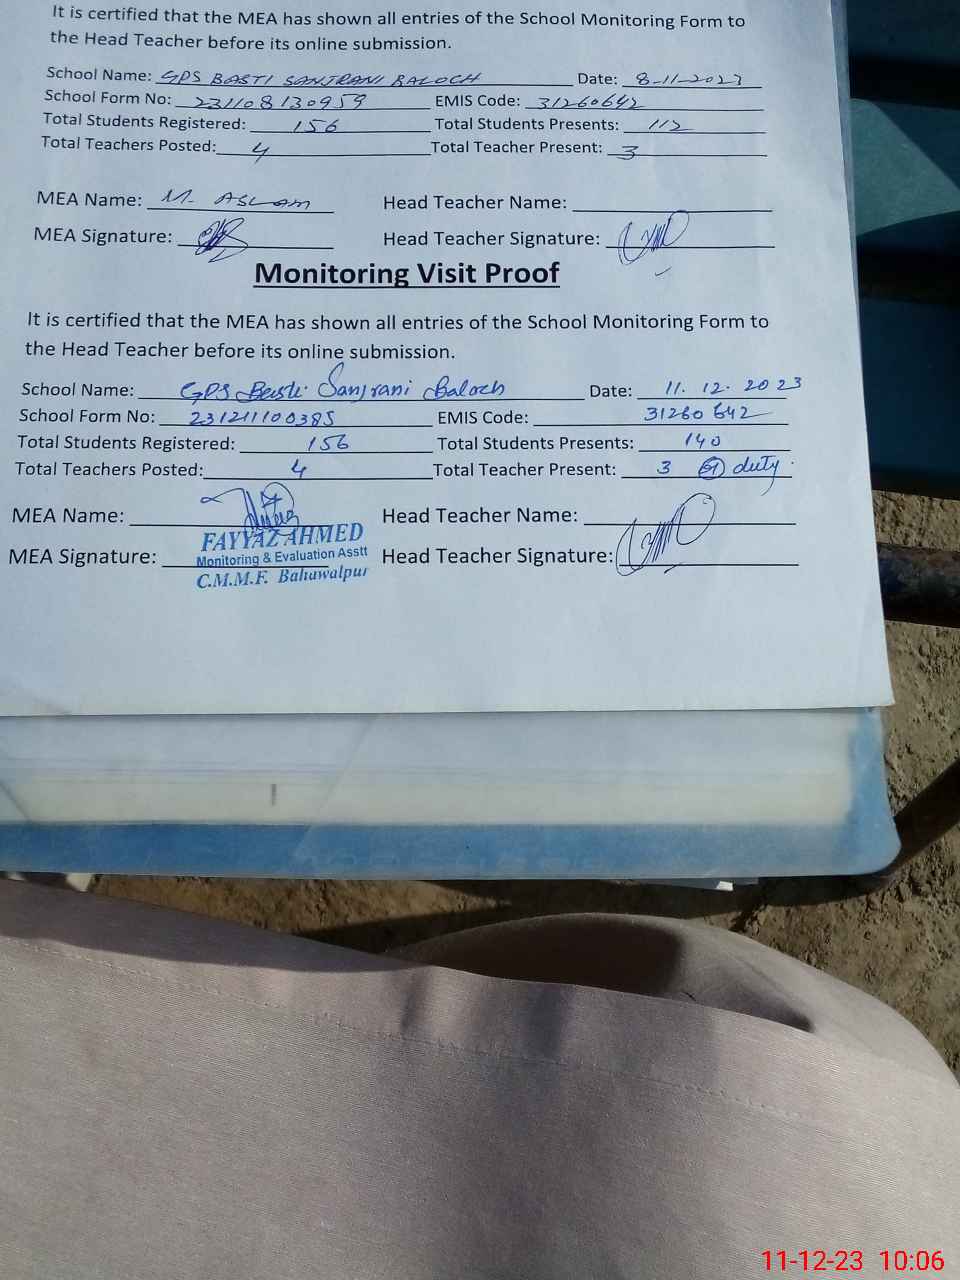 It is certified that the MEA has shown all entries of the School Monitoring Form to
the Head Teacher before its online submission.
School Name: GPS BASTI SANJRANI BALOCH Date: 8-11-2023
School Form No: 231108130959 EMIS Code: 31260642
Total Students Registered: 156 Total Students Presents: 112
Total Teachers Posted: 4 Total Teacher Present: 3
MEA Name: M. ASLAM Head Teacher Name:
MEA Signature: Head Teacher Signature:
Monitoring Visit Proof
It is certified that the MEA has shown all entries of the School Monitoring Form to
the Head Teacher before its online submission.
School Name: GPS Basti Sanjrani Baloch Date: 11. 12. 2023
School Form No: 231211100385 EMIS Code: 31260642
Total Students Registered: 156 Total Students Presents: 140
Total Teachers Posted: 4 Total Teacher Present: 3 duty
MEA Name: Head Teacher Name:
FAYYAZ AHMED
Monitoring & Evaluation Asstt
MEA Signature: Head Teacher Signature:
C.M.M.F. Bahawalpur
11-12-23 10:06